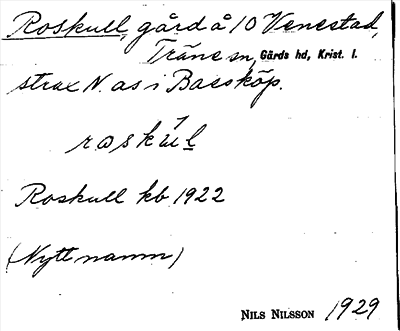 Roskull, gård å 10 Venestad,
Träne sn, Gärds hd, Krist. l.
strax N. as i Baesköp.
roskúl
Roskull kb 1922
(Nytt namn)
NILS NILSSON 1929